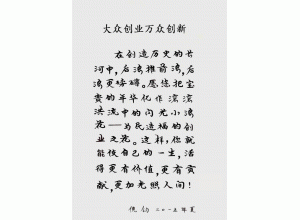 大众创业万众创新
在创造历史的长
河中，后浪推前浪，后
浪更磅礴。愿您把宝
贵的年华化作滚滚
洪流中的闪光小浪
花——为民造福的创
业之花。这样，你就
能使自己的一生，活
得更有价值，更有贡
献，更加光照人间！
二〇一五年夏